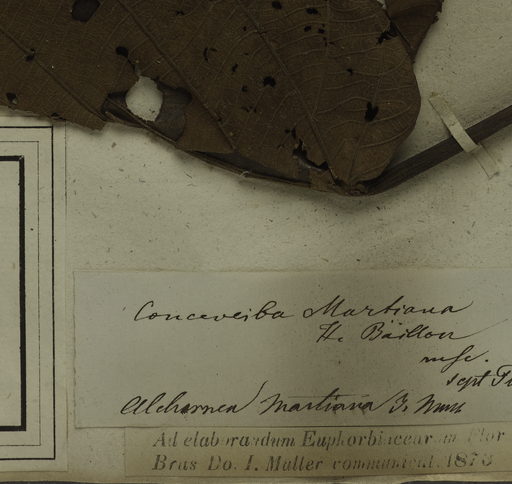 Conceveiba Martiana
H. Baillon
msc.
sept
Alchornea martiana J. Mull
Ad elaborandum Euphorbiacearum Flor
Bras Do. I. Müller communicat. 1873